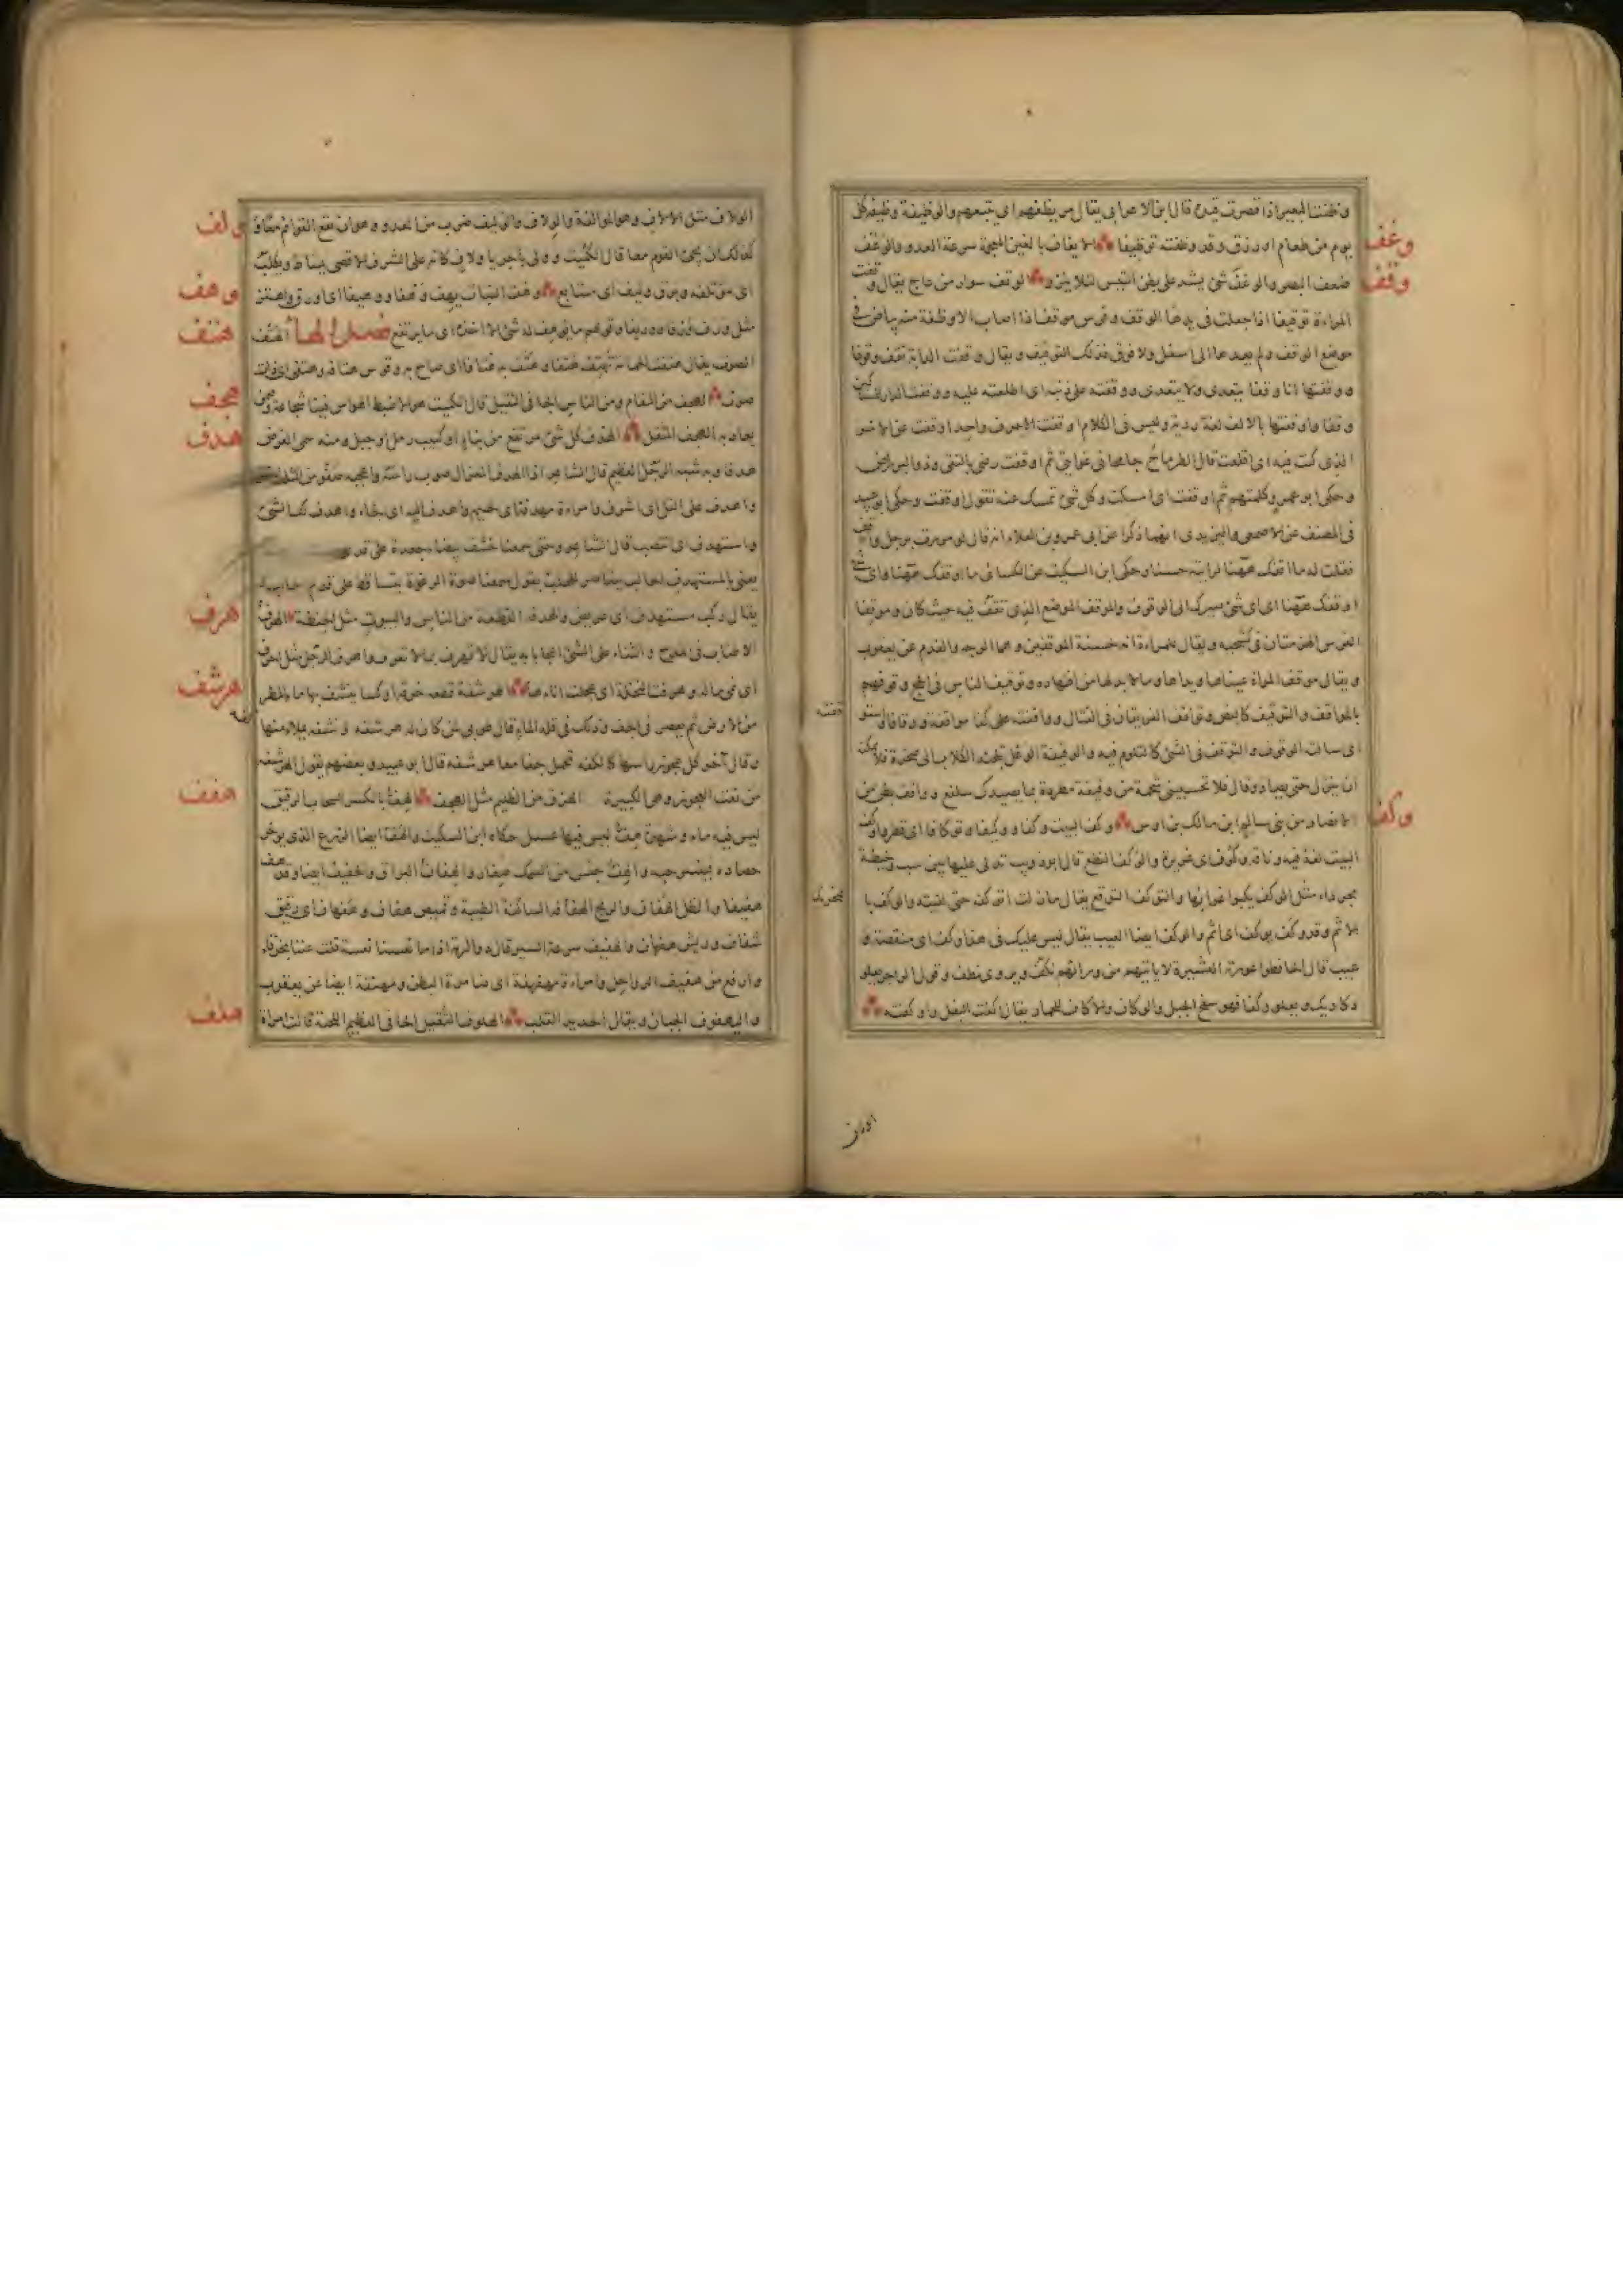 وظفت البعير اذا قصرت قيده قال ابن الاعرابي يقال مر يظفهم اي يتبعهم والوظيفة وظيفة كل
وغف
يوم من طعام او رزق وقد وظفته توظيفا الايغاف بالغين المعجمة سرعة العدو والوغف
وقف
ضعف البصر والوغف شئ يشد على بطن التيس لئلا ينزو الوقف سوار من عاج يقال وقفت
المراءة توقيفا اذا جعلت في يدها الوقف وفرس موقف اذا اصاب الاوظفة منه بياض في
موضع الوقف ولم يعدها الى اسفل ولا فوق فذلك التوقيف ويقال وقفت الدابة تقف وقوفا
ووقفتها انا وقفا يتعدى ولا يتعدى ووقفته على ذنبه اي اطلعته عليه ووقفت الدار للمساكين
وقفا واوقفتها بالالف لغة ردية وليس في الكلام اوقفت الا حرف واحد اوقفت عن الامر
الذي كنت فيه اي اقلعت قال الطرماح جامحا في غوايتي ثم اوقفت رضى بالتقى وذو البر راض
وحكى ابو عمرو كلمتهم ثم اوقفت اي امسكت وكل شئ تمسك عنه تقول اوقفت وحكى ابو عبيد
في المصنف عن الاصمعي واليزيدي انهما ذكرا عن ابي عمرو بن العلاء انه قال لو مررت برجل واقف
فقلت له ما اوقفك ههنا لرايته حسنا وحكى ابن السكيت عن الكسائي ما اوقفك ههنا واي شئ
اوقفك ههنا اي اي شئ صيرك الى الوقوف والموقف الموضع الذي تقف فيه حيث كان وموقفا
الفرس الهزمتان في كشحيه ويقال للمراءة انها حسنة الموقفين وهما الوجه والقدم عن يعقوب
ويقال موقف المراة عيناها ويداها وما لا بد لها من اظهاره وتوقيف الناس في الحج وقوفهم
بالمواقف والتوقيف كالنص وتواقف الفريقان في القتال وواقفته على كذا مواقفة ووقافا واستوقفته
اي سالته الوقوف والتوقف في الشئ كالتلوم فيه والوقيفة الوعل تلجئه الكلاب الى صخرة فلا يمكنه
ان ينزل حتى يصاد وقال فلا تحسبني شحمة من وقيفة مطردة مما تصيدك سلفع وواقف بطن من
وكف
الانصار من بني سالم ابن مالك بن اوس وكف البيت وكفا ووكيفا وتوكافا اي قطر واوكف
البيت لغة فيه وناقة وكوف اي غزيرة والوكف النطع قال ابو ذويب تدلى عليها بين سب وخيطة
بجرداء مثل الوكف يكبوا غرابها والتوكف التوقع يقال ما زلت اتوكفه حتى لقيته والوكف بالتحريك
الاثم وقد وكف يوكف اي اثم والوكف ايضا العيب يقال ليس عليك في هذا وكف اي منقصة و
عيب قال الحافظوا عورة العشيرة لا ياتيهم من ورائهم وكف ويروى نطف وقول الراجز يعلو
دكاديك ويعلو وكفا فهو سفح الجبل والوكاف والاكاف للحمار يقال اكفت البغل واوكفته
ولف
الولاف مثل الالاف وهو الموالفة والولاف والوليف ضرب من العدو وهو ان تقع القوائم معا و
كذلك ان يجئ القوم معا قال الكميت وولى باجريا ولاف كانه على الشرف الاقصى يساط ويكلب
وهف
اي مؤتلفه وبرق وليف اي متتابع وهف النبات يهف وهفا ووهيفا اي اورق واهتز
هتف
مثل ورف ورفا ووريفا وقولهم ما يوهف له شئ الا اخذه اي ما يرتفع فصل الهاء الهتف
الصوت يقال هتفت الحمامة تهتف هتفا وهتف به هتافا اي صاح به وقوس هتافة وهتفى اي ذات
هجف
صوت الهجف من النعام ومن الناس الجافي الثقيل قال الكميت هو الاضبط الهواس فينا شجاعة وفيمن
هدف
يعاديه الهجف المثقل الهدف كل شئ مرتفع من بناء او كثيب رمل او جبل ومنه سمي الغرض
هدفا وبه شبه الرجل العظيم قال الشاعر اذا الهدف المعزال صوب راسه واعجبه ضفو من
واهدف على التل اي اشرف وامراءة مهدفة اي لحيمة واهدف اليه اي لجاء واهدف لك الشئ
واستهدف اي انتصب قال الشاعر وحتى سمعنا خشف بيضاء جعدة على قدمي
يعني بالمستهدف الحالب يتقاصر للحلب يقول سمعنا صوت الرغوة يتساقط على قدم حالبها
هرف
يقال ركب مستهدف اي عريض والهدفة القطعة من الناس والبيوت مثل الهرف
الاطناب في المدح والثناء على الشئ اعجابا به يقال لا تهرف بما لا تعرف واهرف الرجل مثل احرف
هرشف
اي نمى ماله وهرفت النخلة اي عجلت اناءها الهرشفة قطعة خرقة او كساء ينشف بها ماء المطر
من الارض ثم يعصر في الجف وذلك في قلة الماء قال طوبى لمن كانت له هرشفة ونشفة يملاء منها كفه
وقال آخر كل عجوز راسها كالكفه تحمل جفا معها هرشفه قال ابو عبيد وبعضهم يقول الهرشفه
هفف
من نعت العجوز وهي الكبيرة الهزف من الظليم مثل الهجف الهف بالكسر السحاب الرقيق
ليس فيه ماء وشهدة هف ليس فيها عسل حكاه ابن السكيت والهف ايضا الزرع الذي يوخر
حصاده فينتثر حبه والهف جنس من السمك صغار والهفاف البراق والخفيف ايضا وقد هف
هفيفا والظل الهفاف والريح الهفافة الساكنة الطيبة وقميص هفاف وهفهاف اي رقيق
شفاف وريش هفهاف والهفيف سرعة السير قال ذو الرمة اذا ما نعسنا نعسة قلت غننا بخرقاء
وارفع من هفيف الرواحل وامراءة مهفهفة اي ضامرة البطن ومهففة ايضا عن يعقوب
هلف
واليهفوف الجبان ويقال الحديد القلب الهلوف الثقيل الجافي العظيم اللحية قالت امراة